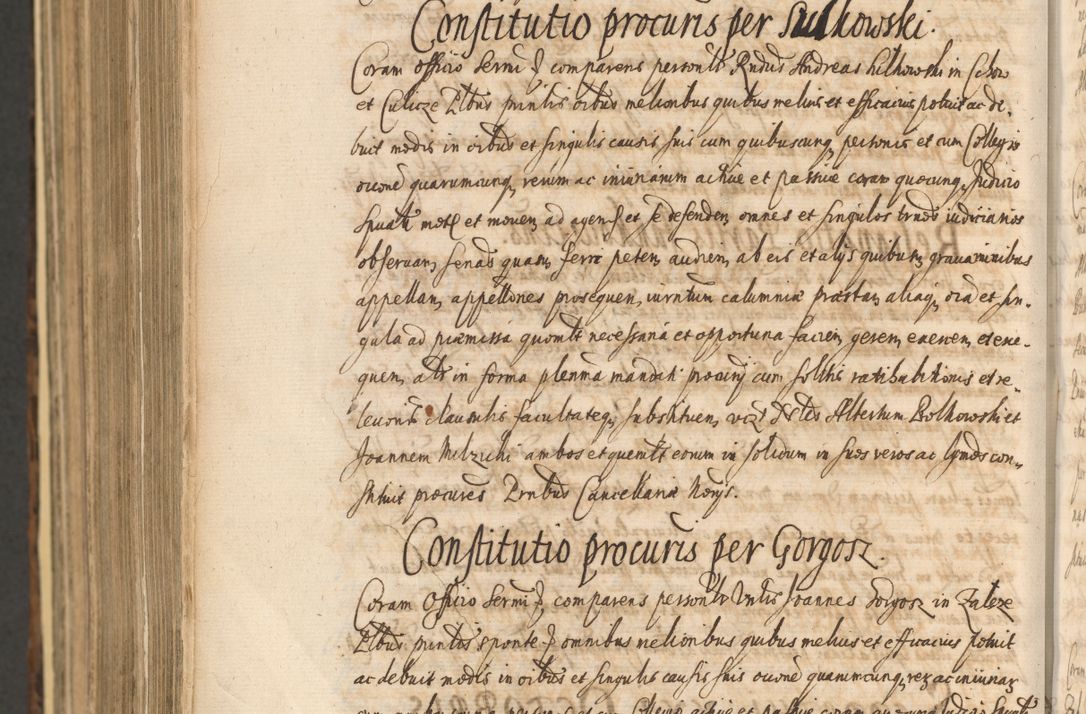 Constitutio procuris per Sulkowski.
Coram Officio Sermi & comparens personlr Rndus Andreas Kilkowski in
et Plbus omnibus melioribus quibus melius et efficacius potuit ac de-
buit modis in oibus et singulis causis suis cum quibuscunq personis et cum Collegijs
occone quarumcunq rerum ac iniuriarum active et passive coram quocunq Judicio
Spuali mot et moven ad agen et se defenden omnes et singulos trnos iudiciarios
observan, senas quasuis ferri peten, audien, ab eis et alijs quibusuis gravaminibus
appellan, appellones prosequen, iurntum calumniæ præstan, aliaq oia et sin-
gula ad præmissa quomlt necessaria et opportuna facien, geren, exercen, et exe-
quen, in forma plenma mandati procurij cum solitis ratihabitionis et re-
levonis clausulis facultateq substituen, vizt Albertum Bolkowski et
Joannem Milzicki ambos et quemlt eorum in solidum in suos veros ac lgmos con-
stituit procures Pntbus Cancellariæ Norijs.
Constitutio procuris per Gorgosz.
Coram Officio Sermi & comparens personlr Joannes Gorgosz in Zaleze
Plbus sponte & omnibus melioribus quibus melius et efficacius potuit
ac debuit modis in oibus et singulis causis suis occone quarumcunq rez ac iniuriar
Collegio active et passive coram quocunq Judicio Spuali